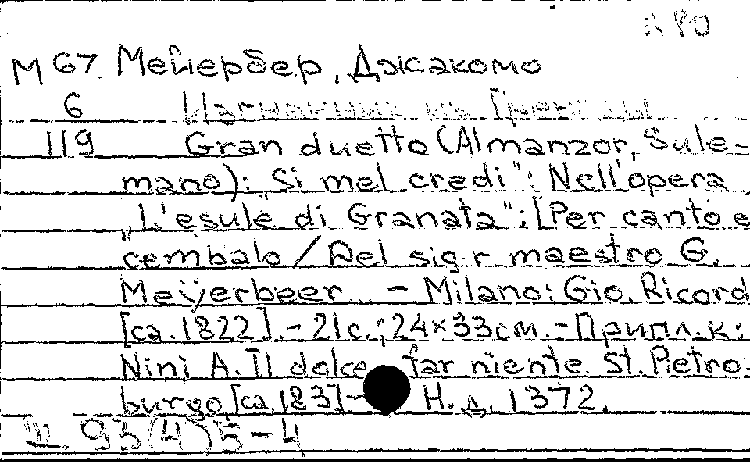 М 67 Мейербер, Джакомо
6 Изгнанник из Гренады
119 Gran duetto (Almanzor, Sule-
mano): "Si mel credi": Nell'opera
„L'esule di Granata": [Per canto e
cembalo / Del sig-r maestro G.
Meyerbeer. - Milano: Gio. Ricord
[ca. 1822]. - 21с.; 24×33см. - Припл. к:
Nini A. Il dolce far niente St. Pietro-
burgo, [ca 183]- Н. д. 1372.
II 93(4)5-4